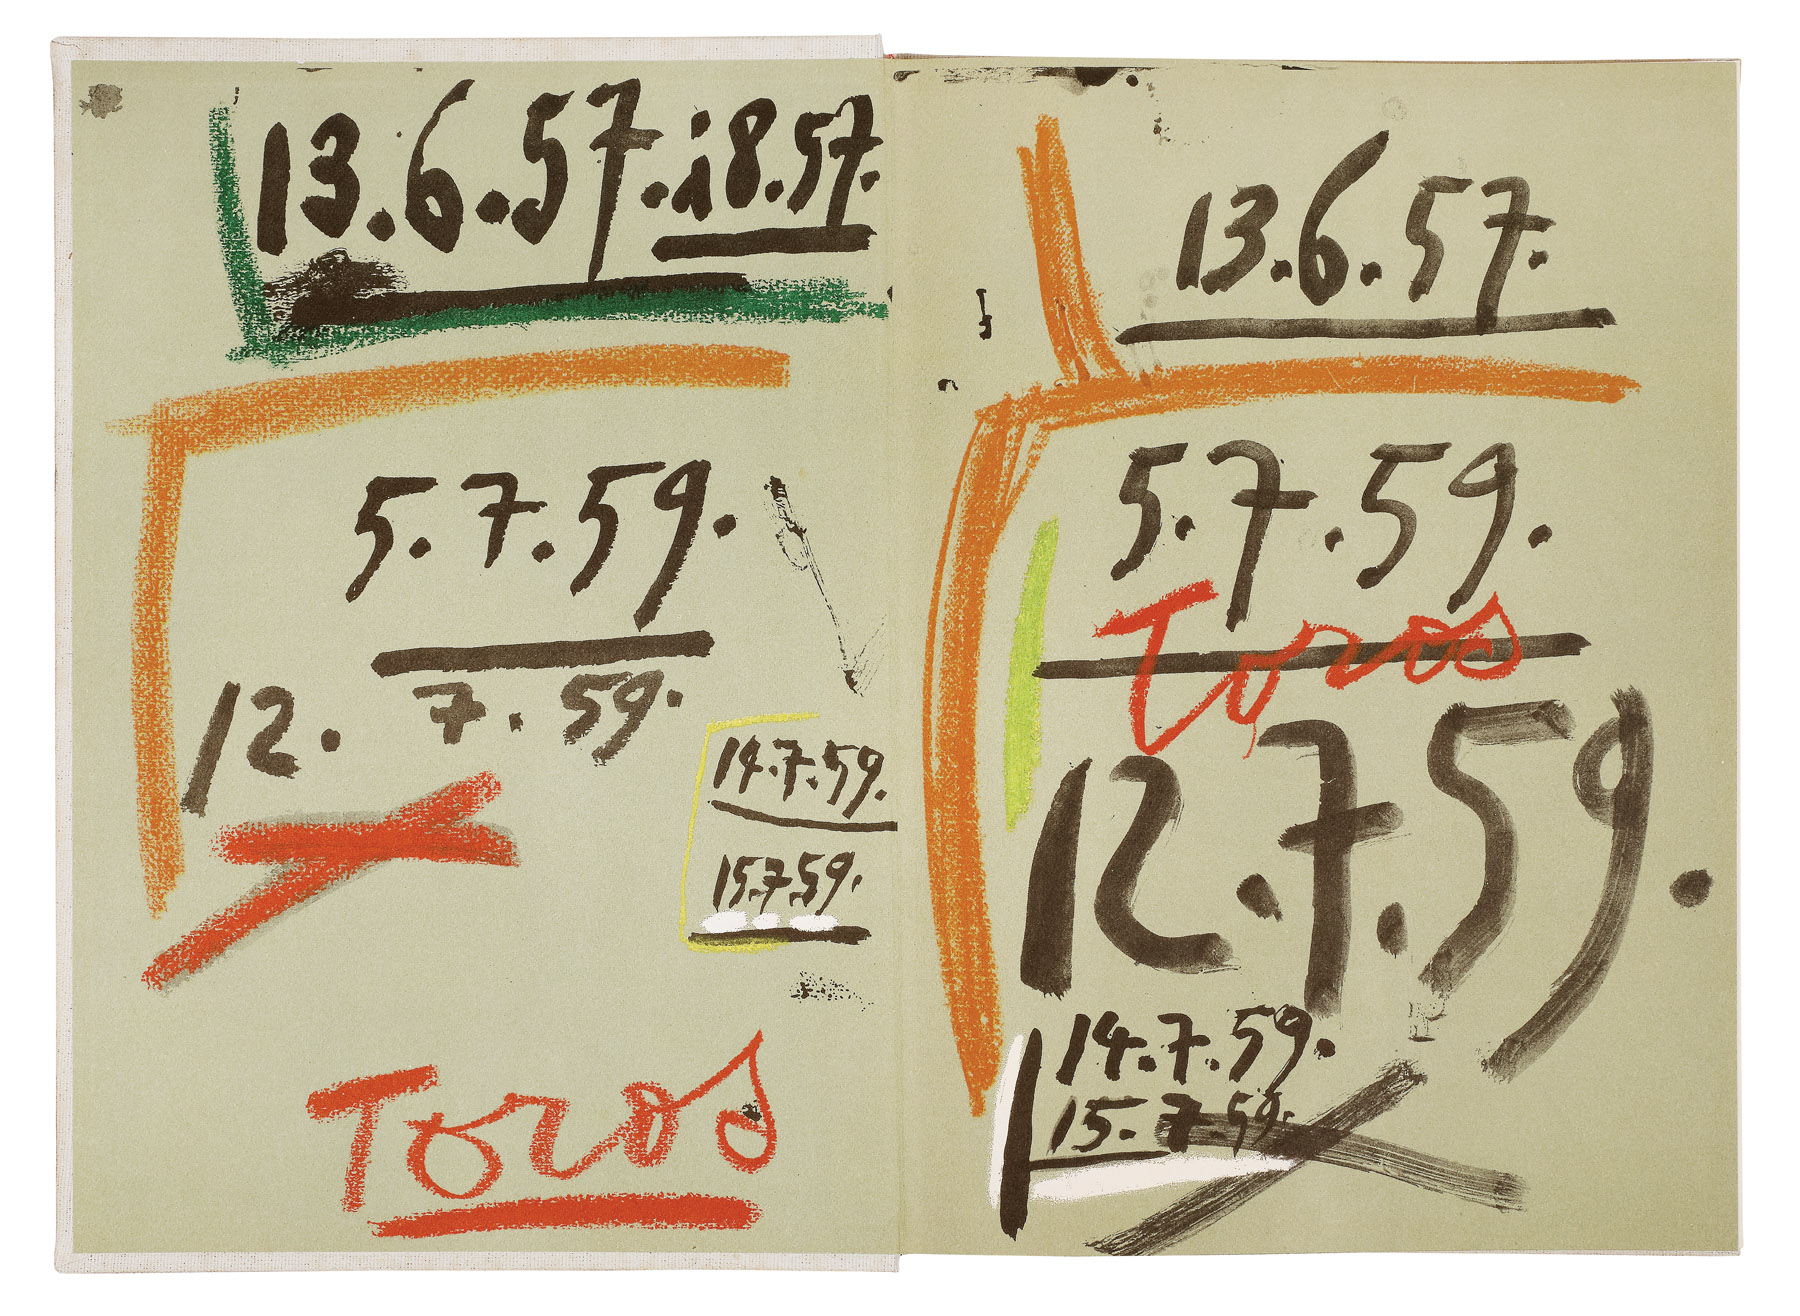 13.6.57.18.57.
5.7.59.
12. 7.59.
14.7.59.
15.7.59.
Toros
13.6.57.
5.7.59.
Toros
12.7.59.
14.7.59.
15.7.59.